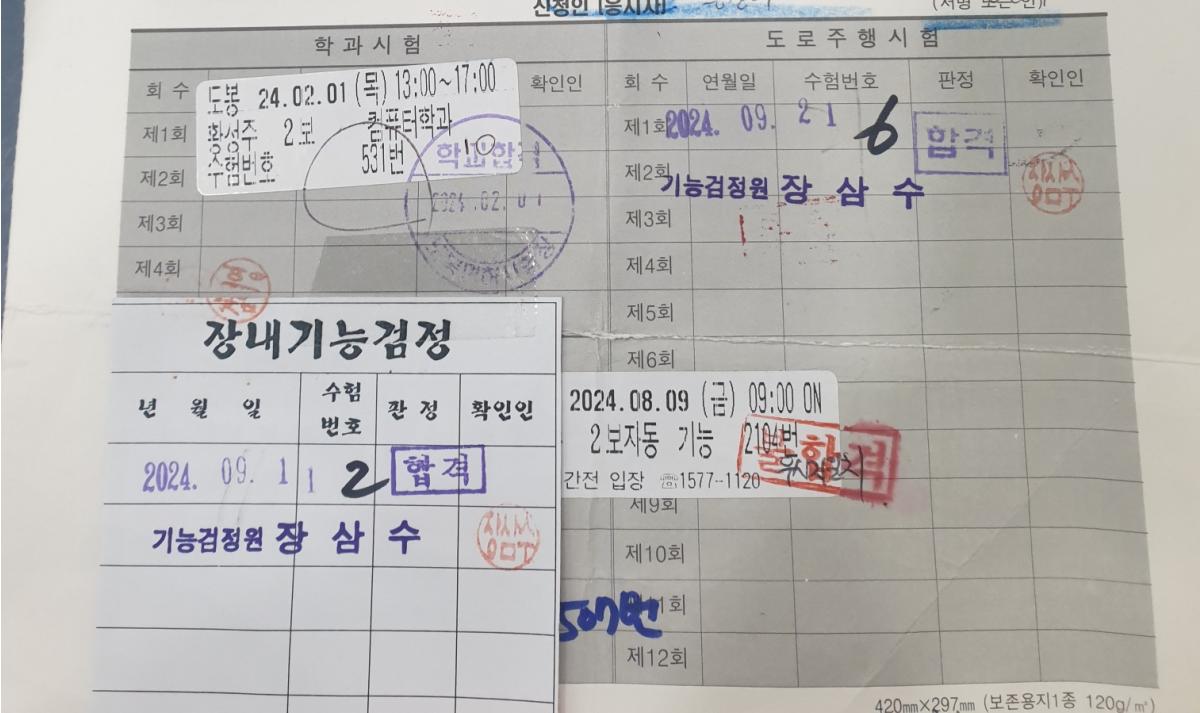 신청인 (응시자)
(서명 또는 인)
학과시험
도로주행시험
회 수
확인인
도봉 24.02.01 (목) 13:00~17:00
황성주 2보 컴퓨터학과
수험번호 531번
10
학과합격
2024.02.01
제1회
제2회
제3회
제4회
회 수 연월일 수험번호 판정 확인인
제1회 2024. 09. 21 6 합격
제2회
기능검정원 장삼수
제3회
제4회
제5회
제6회
장내기능검정
년 월 일 수험번호 판정 확인인
2024. 09. 11 2 합격
기능검정원 장삼수
2024.08.09 (금) 09:00 ON
2보자동 기능 2104번
불합격
간전 입장 ☏1577-1120
제9회
제10회
507번
제12회
420㎜×297㎜ (보존용지1종 120g/㎡)